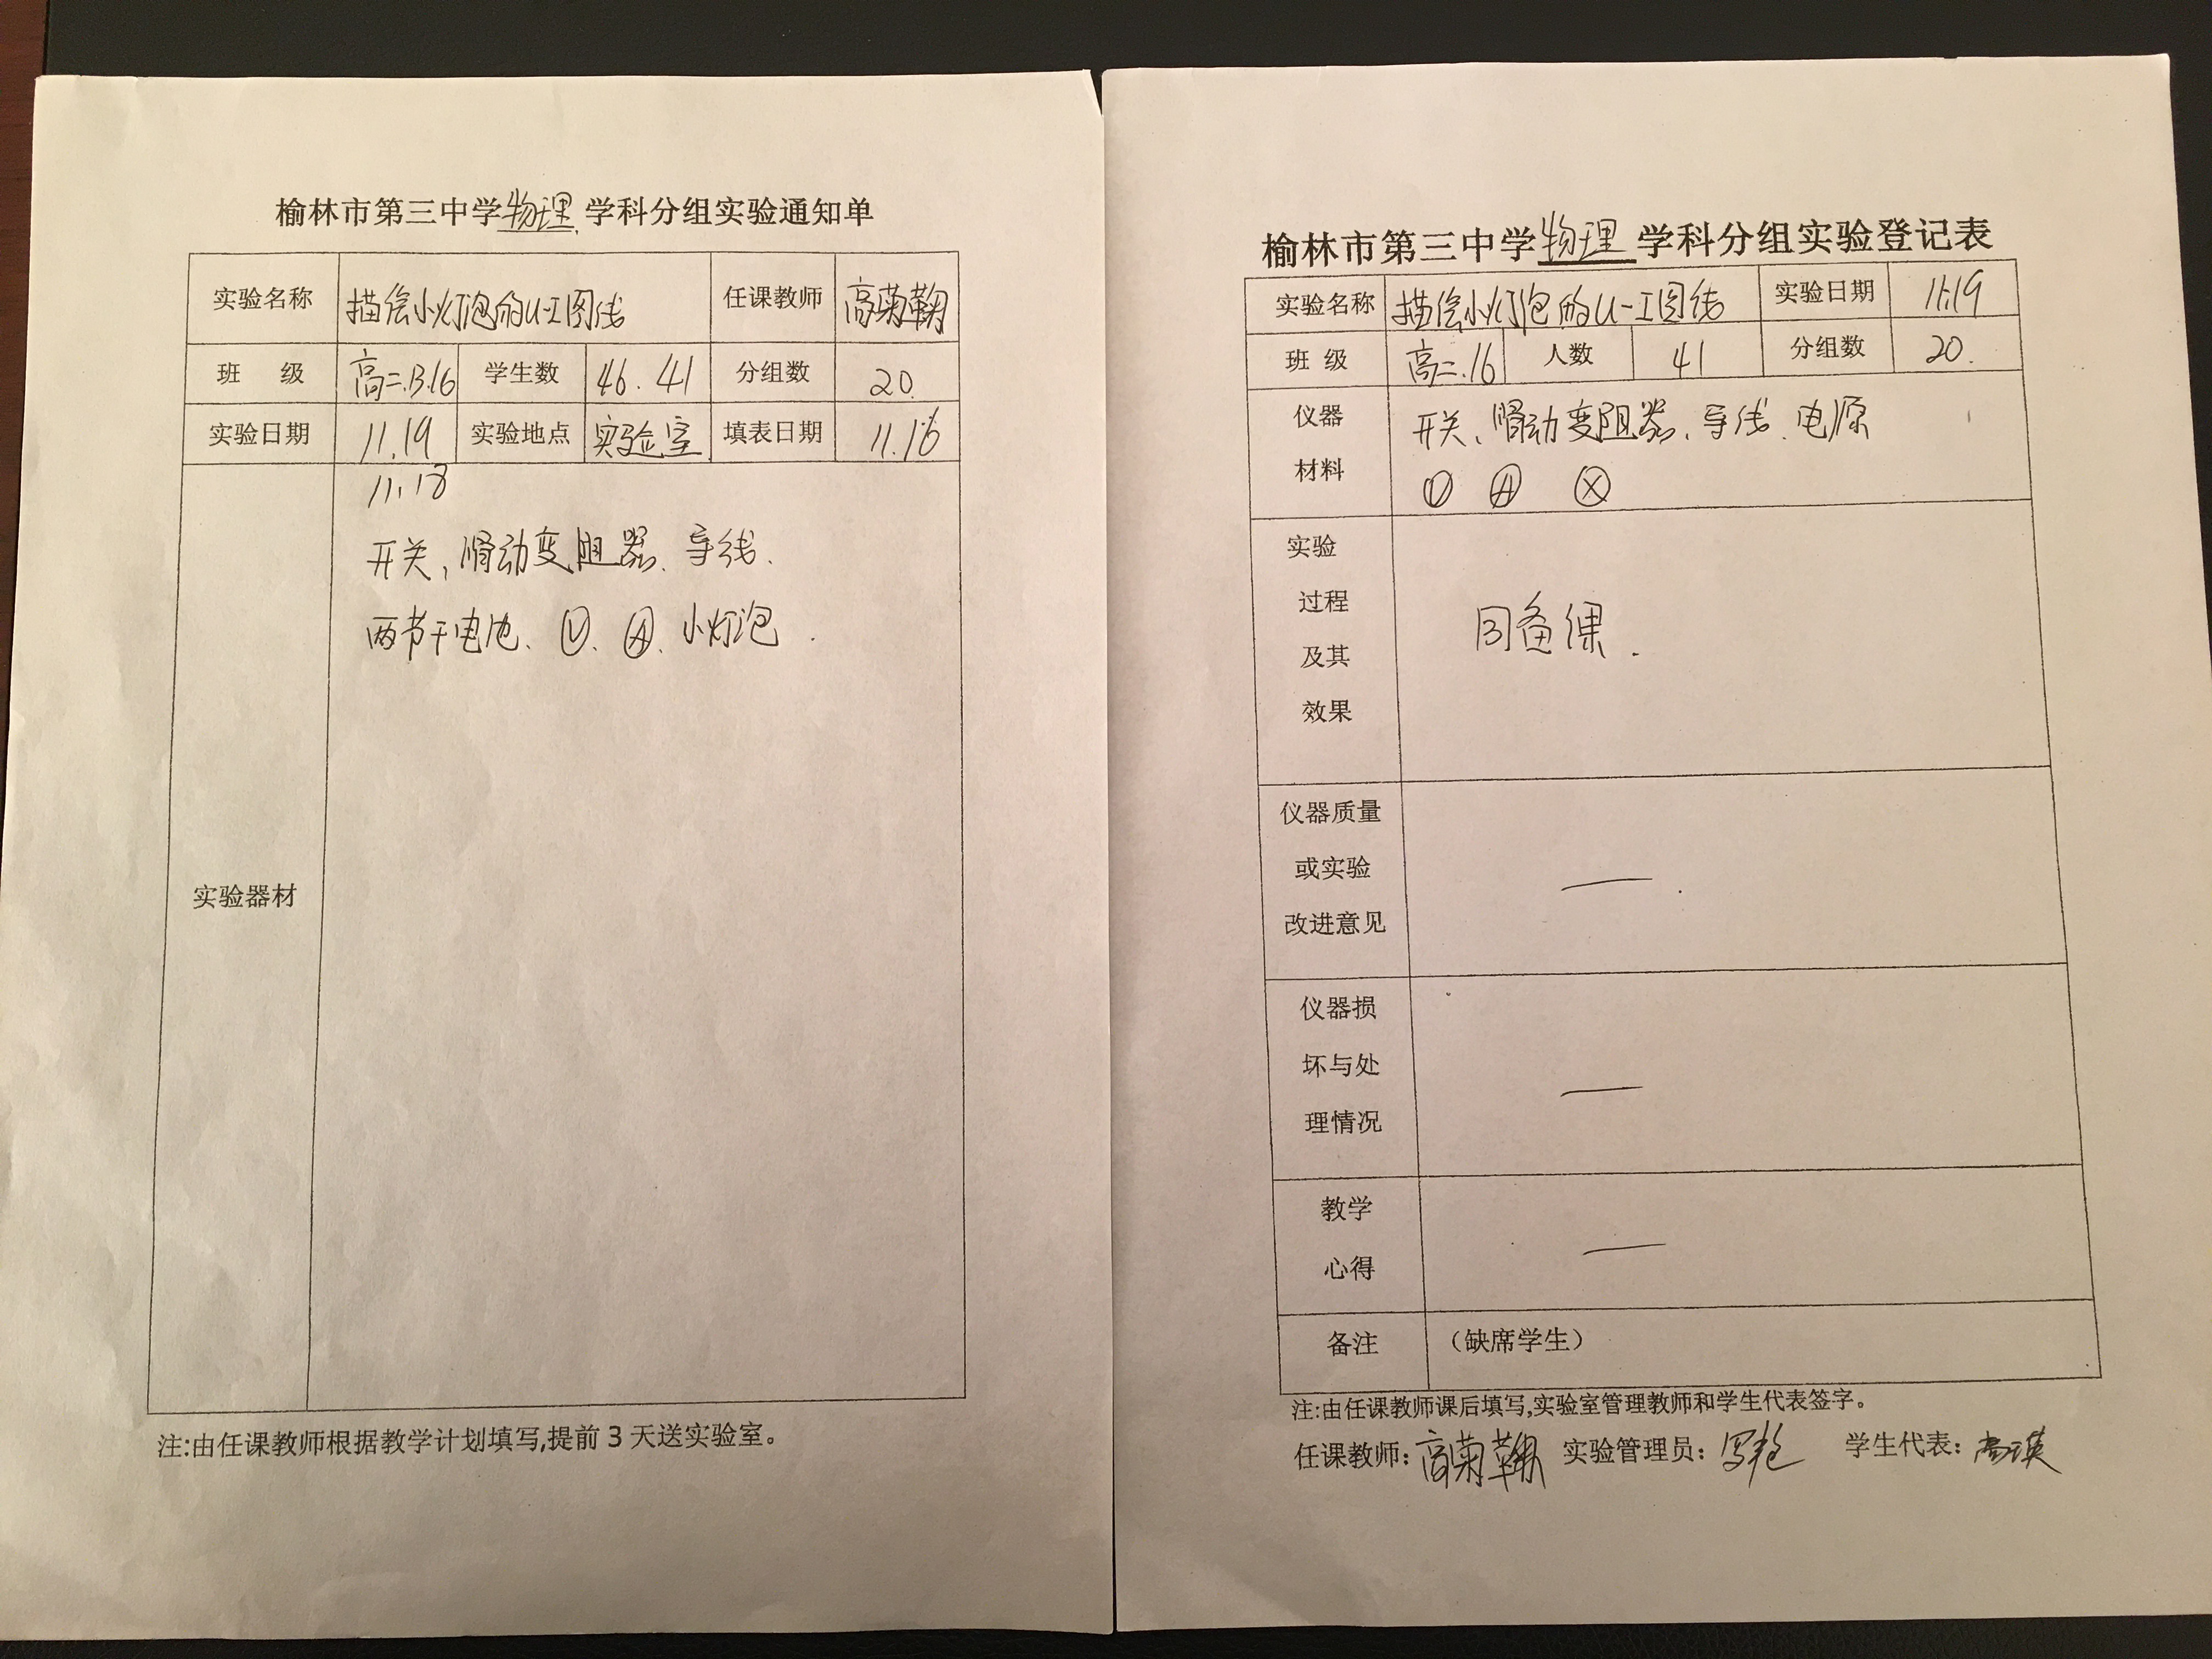 榆林市第三中学物理学科分组实验通知单
实验名称 描绘小灯泡的U-I图线 任课教师 高菊鞠
班 级 高二.13.16 学生数 46.41 分组数 20.
实验日期 11.19 实验地点 实验室 填表日期 11.16
11.18
开关、滑动变阻器、导线、
两节干电池、Ⓥ、Ⓐ、小灯泡.
实验器材
注:由任课教师根据教学计划填写,提前3天送实验室。
榆林市第三中学物理学科分组实验登记表
实验名称 描绘小灯泡的U-I图线 实验日期 11.19
班 级 高二.16 人数 41 分组数 20.
仪器
材料
开关、滑动变阻器、导线、电源
Ⓥ Ⓐ ⊗
实验
过程
及其
效果
同备课.
仪器质量
或实验
改进意见
—
仪器损
坏与处
理情况
—
教学
心得
—
备注 (缺席学生)
注:由任课教师课后填写,实验室管理教师和学生代表签字。
任课教师: 高菊鞠 实验管理员: 学生代表: